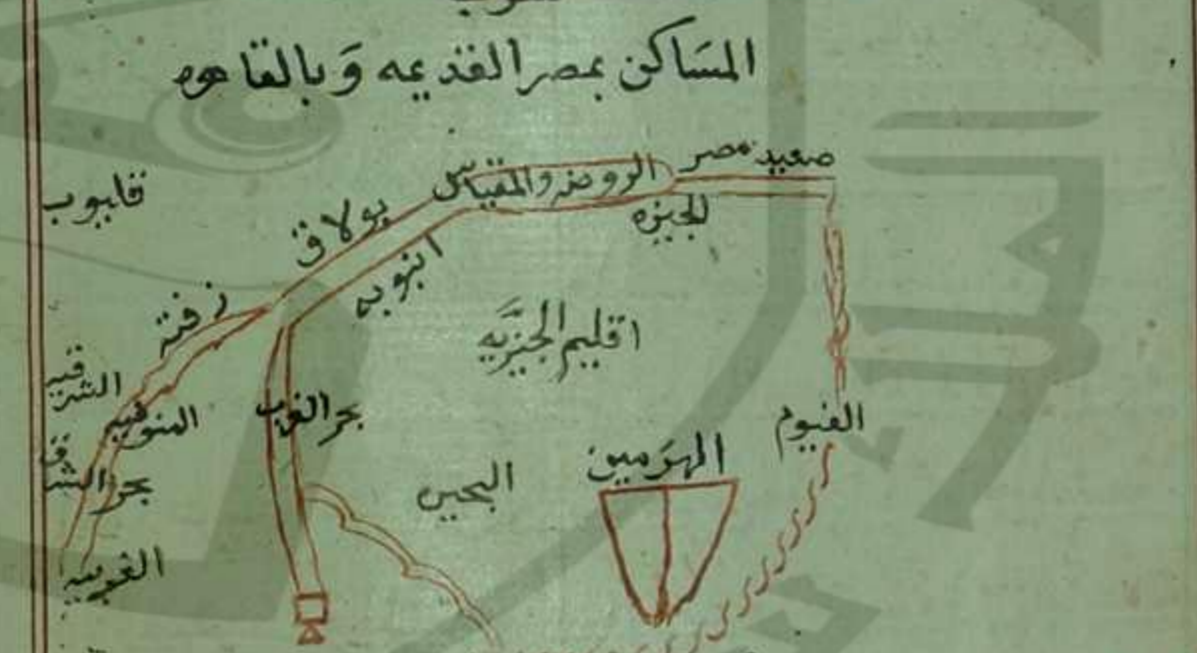 المسَاكن بمصر القديمه وَبالقاهره
صعيد مصر
الروضه والمقياس
الجيزه
بولاق
انبوبه
قليوب
زفتة
اقليم الجيزيَّه
الشرقيه
المنوفيه
بحر الغرب
بحر الشرق
الفيوم
الهرَمين
الغربيه